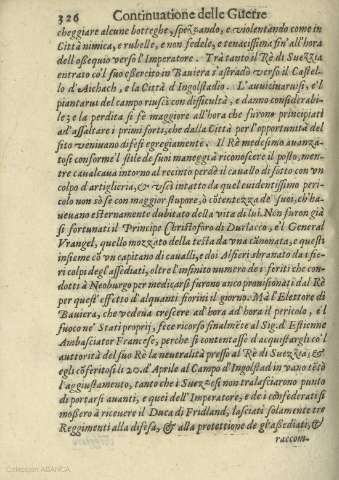 326 Continuatione delle Guerre
cheggiare alcune boteghe, spezzando, e violentando come in
Città nimica, e rubelle, e non fedele, e tenacissima fin'all'hora
dell'ossequio verso l'Imperatore. Trà tanto il Rè di Suezzia
entrato cō'l suo essercito in Bauiera s'astradò verso il Castel-
lo d'Aichach, e la Città d'Ingolstadio. L'auuizinaruisi, e'l
piantarui del campo riuscì con difficultà, e danno considerabi-
le; e la perdita si fè maggiore all'hora che furon principiati
ad'assaltare i primi forti, che dalla Città per l'opportunità del
sito veniuano difesi egregiamente. Il Rè medesimo auanza-
tosi conforme'l stile de suoi maneggi à riconoscere il posto, men-
tre caualcaua intorno al recinto perdè il cauallo di sotto con vn
colpo d'artiglieria, & vscì intatto da quel euidentissimo peri-
colo non sò se con maggior stupore, ò cōtentezza de' suoi, ch'ha-
ueuano esternamente dubitato della vita di lui. Non furon già
sì fortunati il Principe Christoforo di Durlacco, e'l General
Vrangel, quello mozzato della testa da vna cānonata, e questi
insieme cō vn capitano di caualli, e doi Alfieri sbranato da i fie-
ri colpi degl'assediati, oltre l'infinito numero de i feriti che con-
dotti à Neoburgo per medicarsi furono anco prouisionati dal Rè
per quest'effetto d'alquanti fiorini il giorno. Mà l'Elettore di
Bauiera, che vedeua crescere ad hora ad hora il pericolo, e'l
fuoco ne' Stati proprij, fece ricorso finalmēte al Sig. d'Estienne
Ambasciator Francese, perche si contentasse di acquistargli co'l
auttorità del suo Rè la neutralità presso al Rè di Suezzia; &
egli cōferitosi li 20. d'Aprile al Campo d'Ingolstad in vano tētò
l'aggiustamento, tanto che i Suezzesi non tralasciarono punto
di portarsi auanti, e quei dell'Imperatore, e de i confederati si
mossero à riceuere il Duca di Fridland, lasciati solamente tre
Regimenti alla difesa, & alla protettione de gl'assediati, &
raccom-
Colección ABANCA